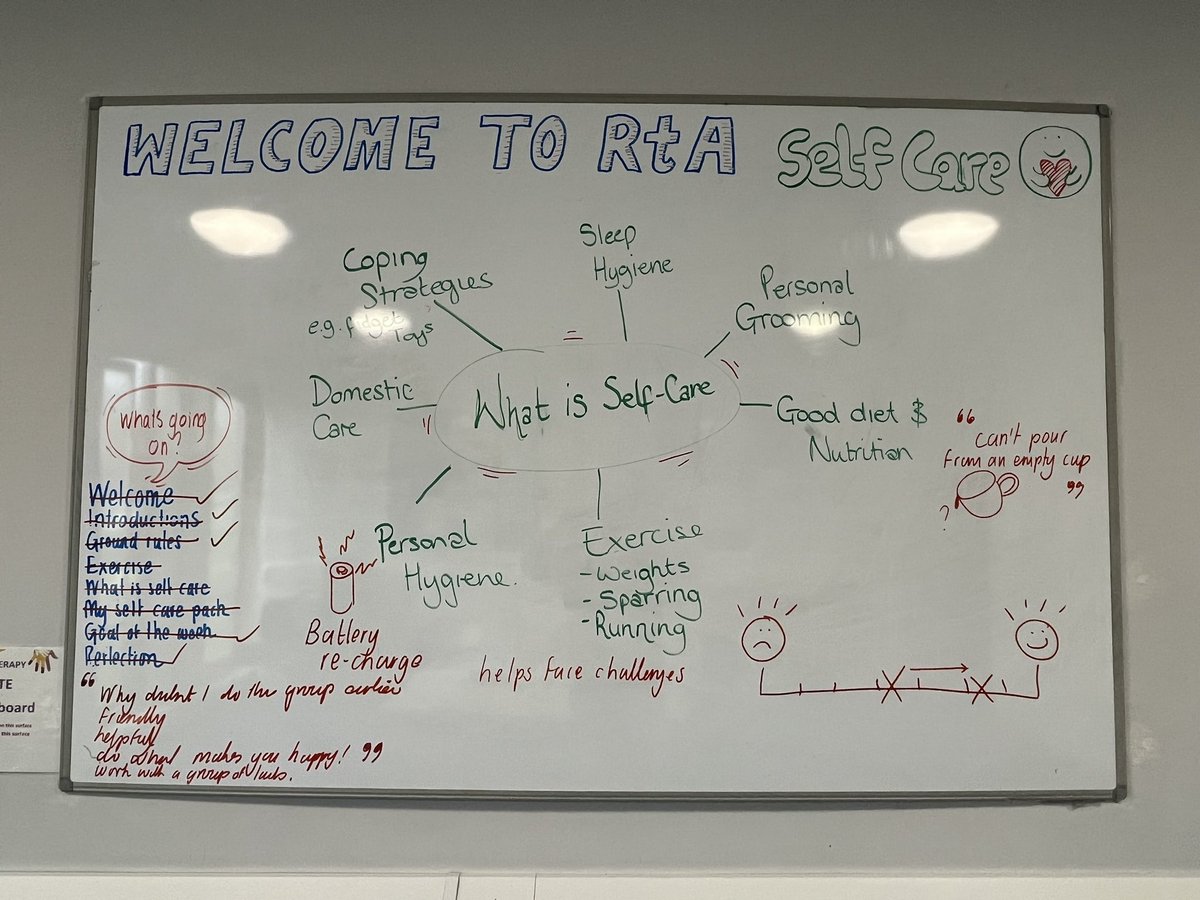 WELCOME TO RtA
Self Care
Coping
Strategies
e.g. fidget
Toys
Sleep
Hygiene
Personal
Grooming
Domestic
Care
What is Self-Care
Good diet $
Nutrition
Personal
Hygiene.
Exercise
- Weights
- Sparring
- Running
“
can't pour
from an empty cup
”
?
Whats going
on?
Welcome
Introductions
Ground rules
Exercise
What is self care
My self care pack
Goal of the week
Reflection
Battery
re-charge
helps face challenges
“
Why didnt I do the group earlier
friendly
helpful
do what makes you happy! ”
work with a group of lads.
ERAPY
TE
board
on this surface
this surface